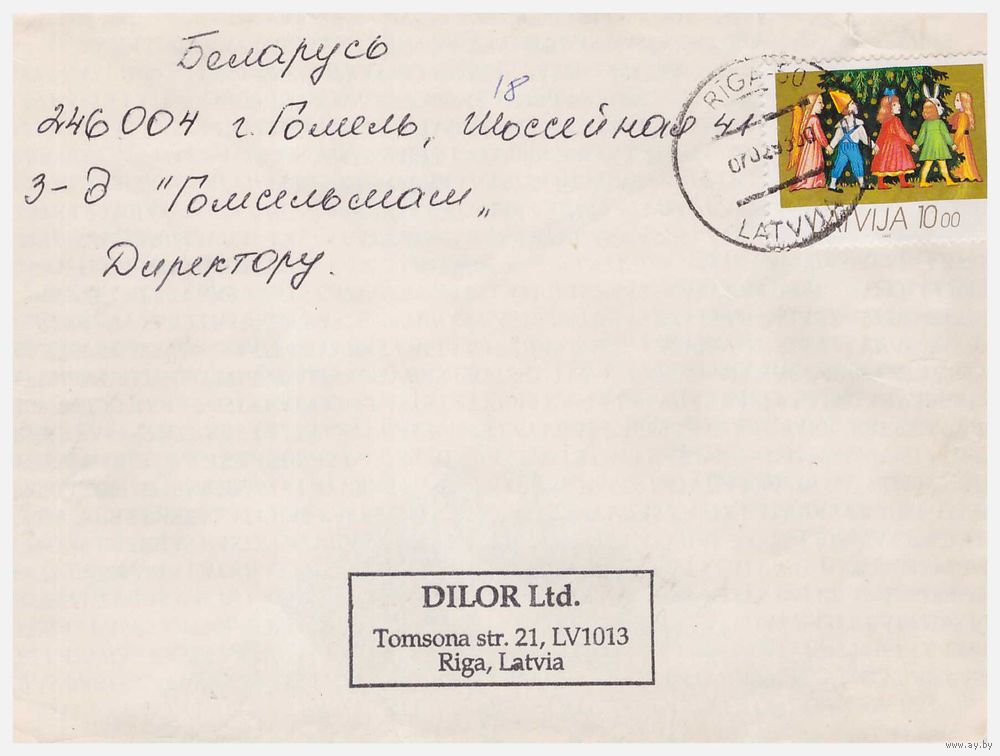 Беларусь
18
246004 г. Гомель, Шоссейная 41
з-д "Гомсельмаш„
Директору.
RĪGA-50
LATVIJA
LATVIJA 10 00
DILOR Ltd.
Tomsona str. 21, LV1013
Riga, Latvia
www.ay.by